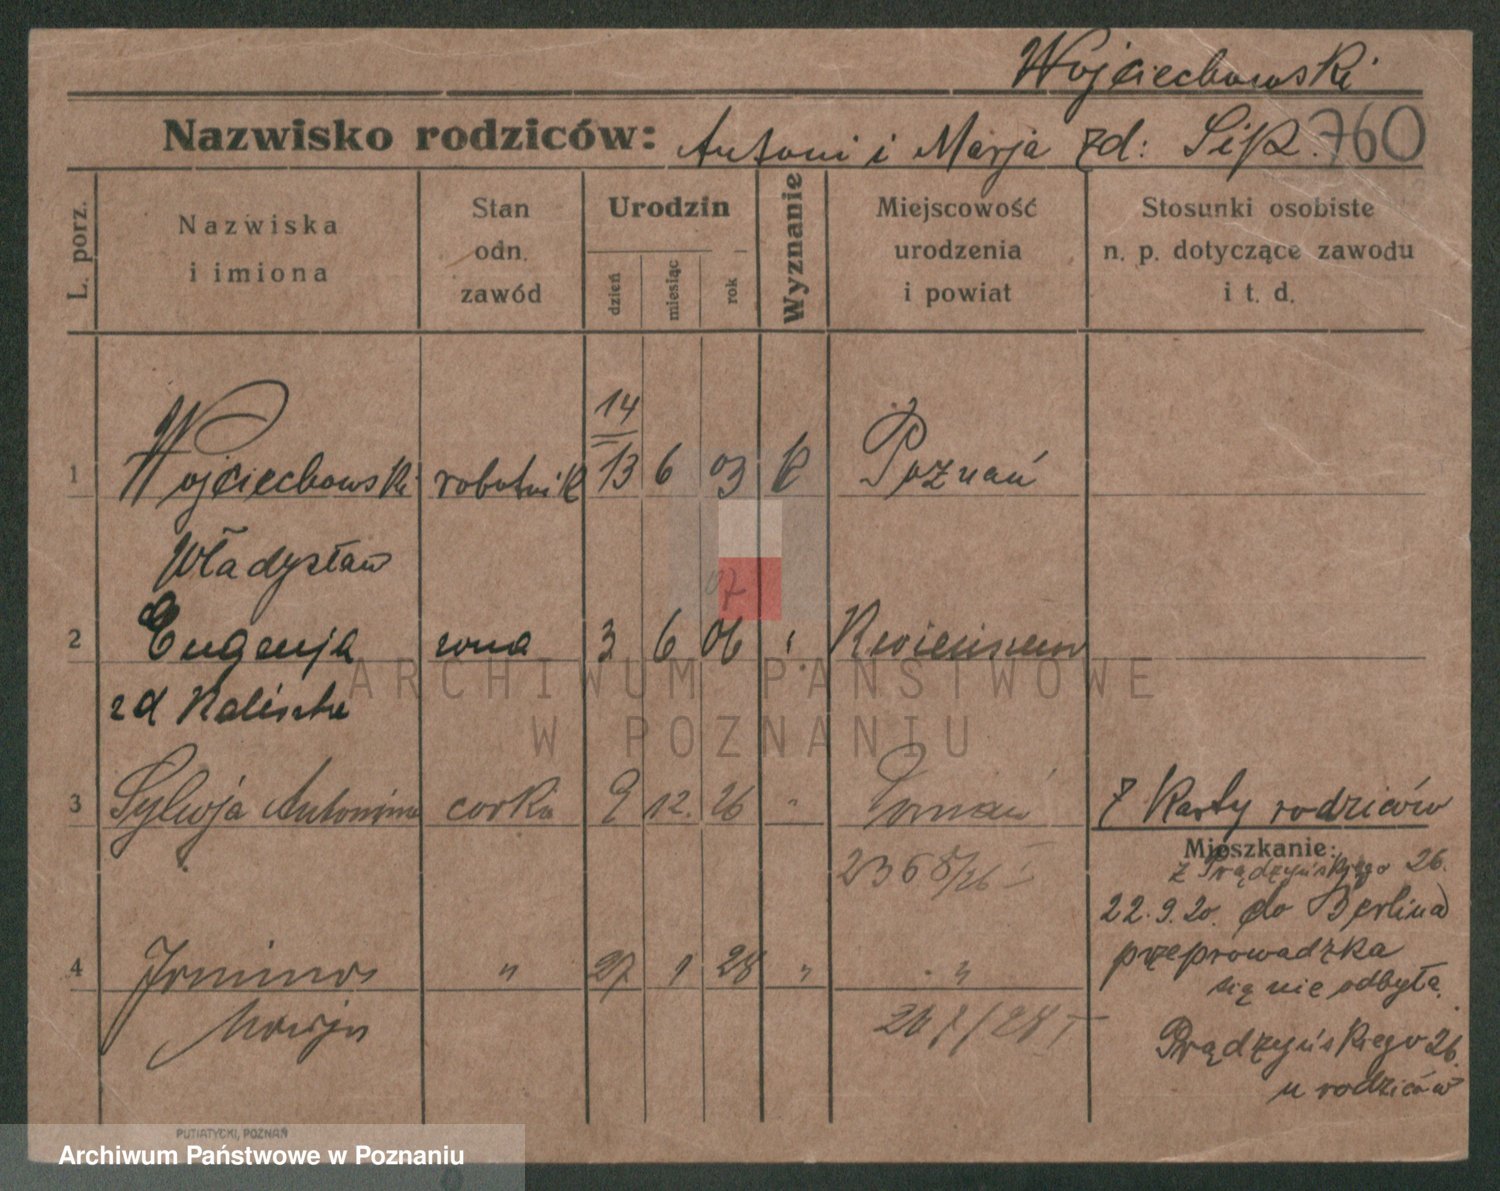 Wojciechowski
Nazwisko rodziców: Antoni i Marja zd: Sip. 760
L. porz.
Nazwiska
i imiona
Stan
odn.
zawód
Urodzin
dzień
miesiąc
rok
Wyznanie
Miejscowość
urodzenia
i powiat
Stosunki osobiste
n. p. dotyczące zawodu
i t. d.
14
1 Wojciechowski robotnik 13 6 03 k Poznań
Władysław
07
2 Eugenja żona 3 6 06 "
zd Kaliszka
ARCHIWUM PAŃSTWOWE
W POZNANIU
3 Sylwja Antonina corka 9 12. 26 " Poznań Z Karty rodziców
2368/26 I
Mieszkanie:
z Prądzyńskiego 26.
22.9.20. do Berlina
przeprowadzka
się nie odbyła.
4 " 27 1 28 " "
Marja
267/28 I
Prądzyńskiego 26.
u rodziców
PUTIATYCKI, POZNAŃ
Archiwum Państwowe w Poznaniu